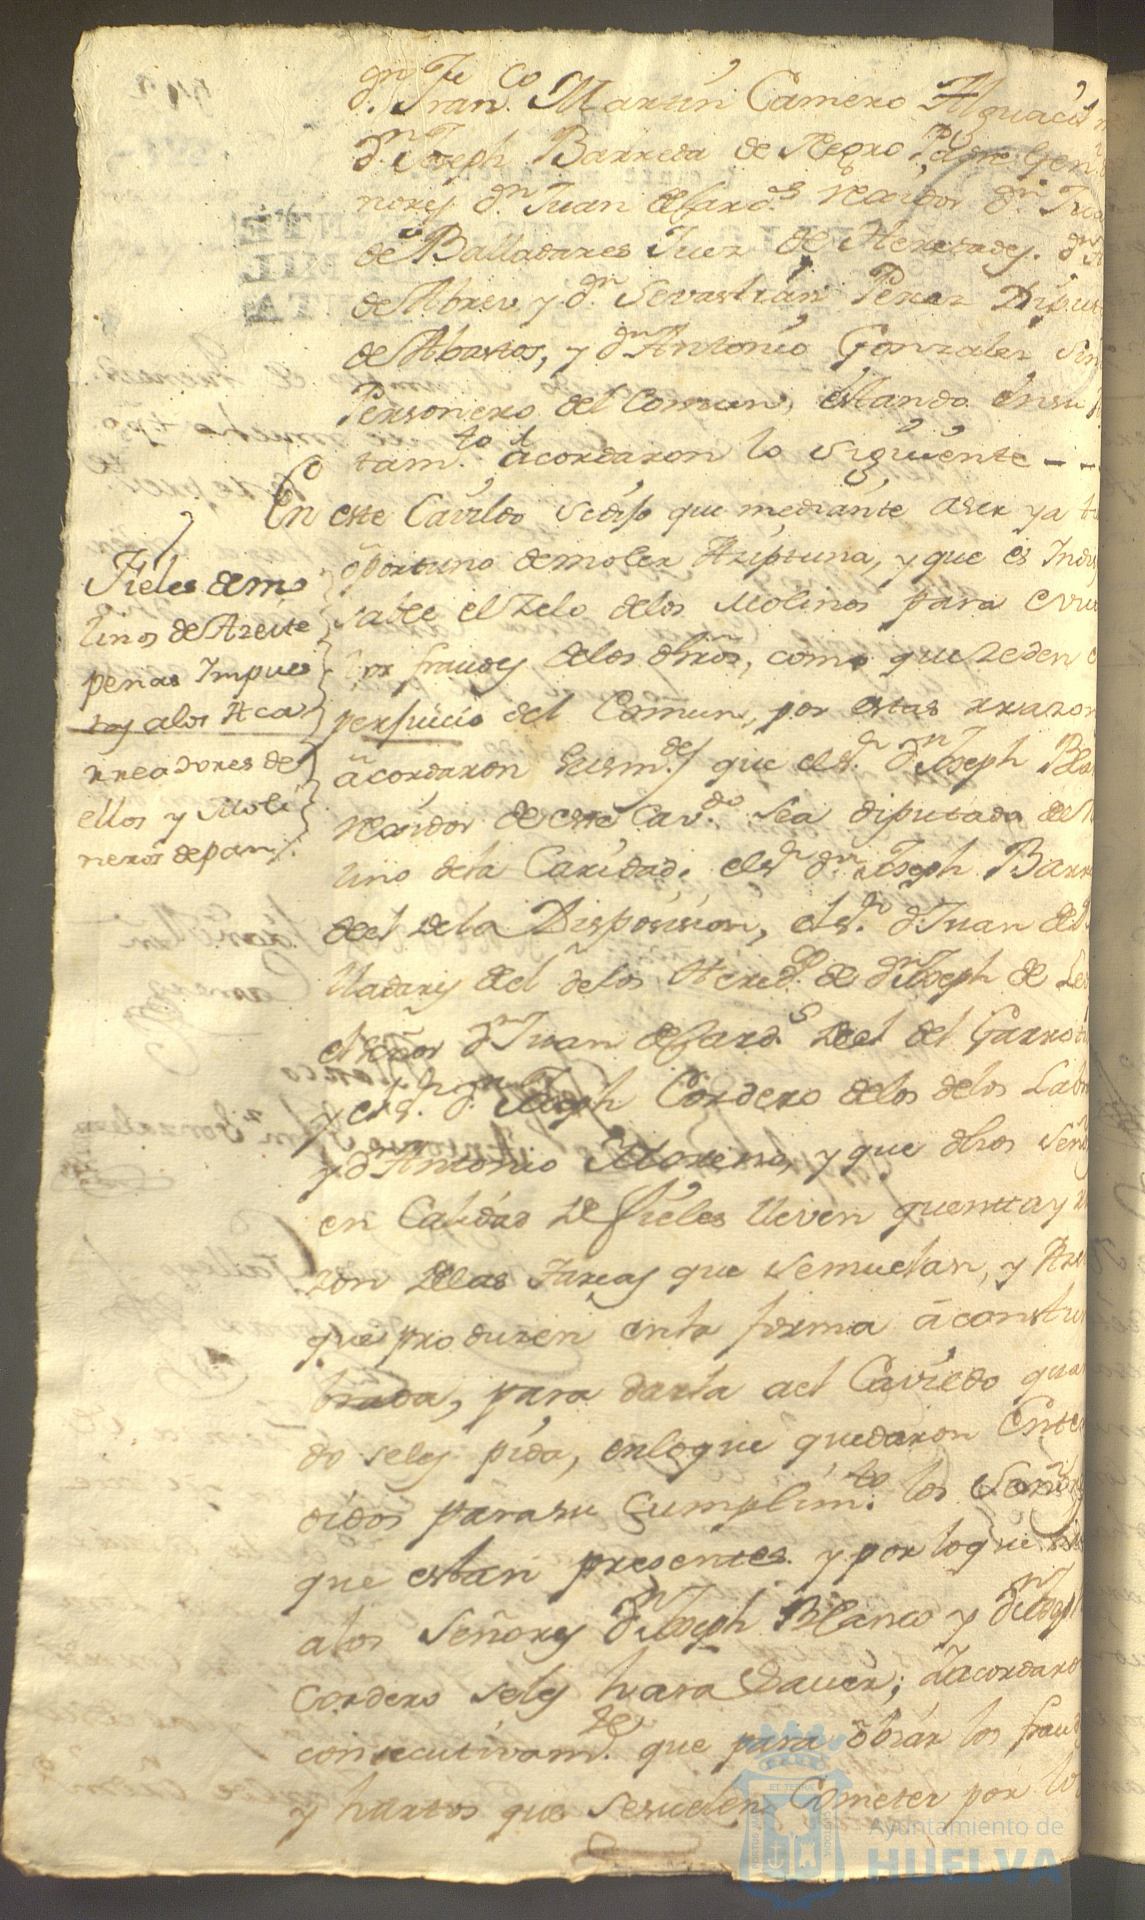 dn. Franco. Martin Camero Alguacil m
dn. Joseph Barreda de Negro Padre Gen
nores dn. Juan de Cards. rexidor dn. Jua
de Balladares Juez de Heredades. dn
de Abreu y dn. Sevastian Perez Diput
de Abastos, y dn. Antonio Gonzalez Sin
Personero del Comun, estando en su
tamto. acordaron lo siguiente - -
En este Cavildo se dijo que mediante a ser ya t
oportuno de moler Azeptuna, y que es Indis
sable el Zelo de los Molinos para evi
los fraudes de los dhos, como que zeden
perjuicio del Comun, por estas rrazon
acordaron sus mdes. que el sr. dn. Joseph Bla
rexidor de este Cavdo. sea diputado del
lino de la Caridad, el sr. dn. Joseph Barr
del de la Disposision, el sr. dn. Juan de
lladares del de los Heredos. de dn. Joseph de
el señor dn. Juan de Cards. del del Garro
y el sr. dn. Joseph Cordero de los de los
y dn. Antonio Moreno, y que dhos señ
en Calidad de fieles lleven quenta y
zon de las tareas que se muelan, y Aze
que produzen en la forma acostu
brada, para darla al Cavildo qua
do se les pida, en lo que quedaron Ente
didos para su cumplimto. los señores
que estan presentes, y por lo que
a los Señores dn. Joseph Blanco y dn. Joseph
Cordero se les hara saver; acordaro
consecutivamte. que para obiar los fraud
y hurtos que se suelen Cometer por lo
Fieles de mo
linos de Azeite
penas Impues
tas a los Aca
rreadores de
ellos y Moli
neros de pan
ET TERRA
Ayuntamiento de
HUELVA